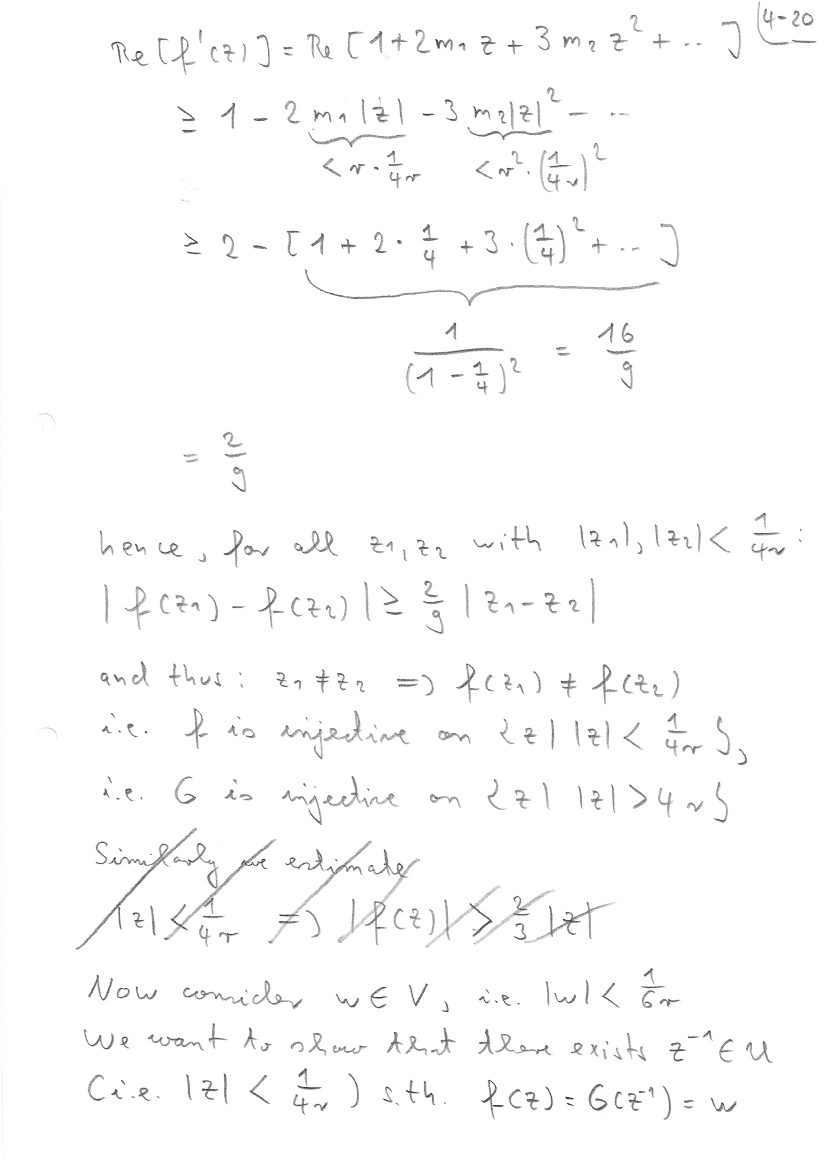 4-20
Re[f'(z)] = Re[1+2m₁z + 3m₂z² + ..]
≥ 1 - 2m₁|z| - 3m₂|z|² - ...
< r·1/4r < r²·(1/4r)²
≥ 2 - [1 + 2·1/4 + 3·(1/4)² + ...]
1/(1-1/4)² = 16/9
= 2/9
hence, for all z₁,z₂ with |z₁|,|z₂| < 1/4r :
|f(z₁) - f(z₂)| ≥ 2/9 |z₁-z₂|
and thus: z₁≠z₂ => f(z₁) ≠ f(z₂)
i.e. f is injective on {z | |z| < 1/4r},
i.e. G is injective on {z | |z| > 4r}
Similarly we estimate
|z| < 1/4r => |f(z)| > 2/3 |z|
Now consider w ∈ V, i.e. |w| < 1/6r
We want to show that there exists z⁻¹ ∈ U
(i.e. |z| < 1/4r) s.th. f(z) = G(z⁻¹) = w